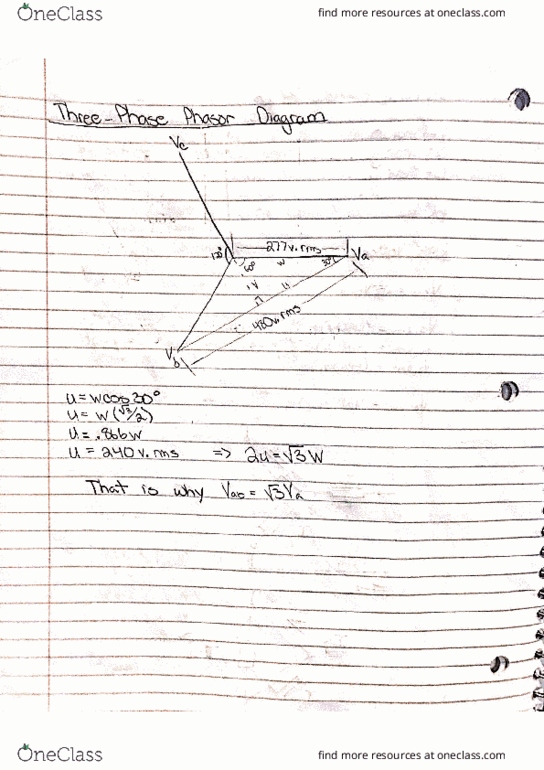 OneClass
find more resources at oneclass.com
Three-Phase Phasor Diagram
Vc
277v.rms
120°
60°
w
30°
Va
V
u
480v.rms
Vb
u = wcos30°
u = w(√3/2)
u = .866w
u = 240 v. rms => 2u = √3w
That is why Vab = √3Va
OneClass
find more resources at oneclass.com